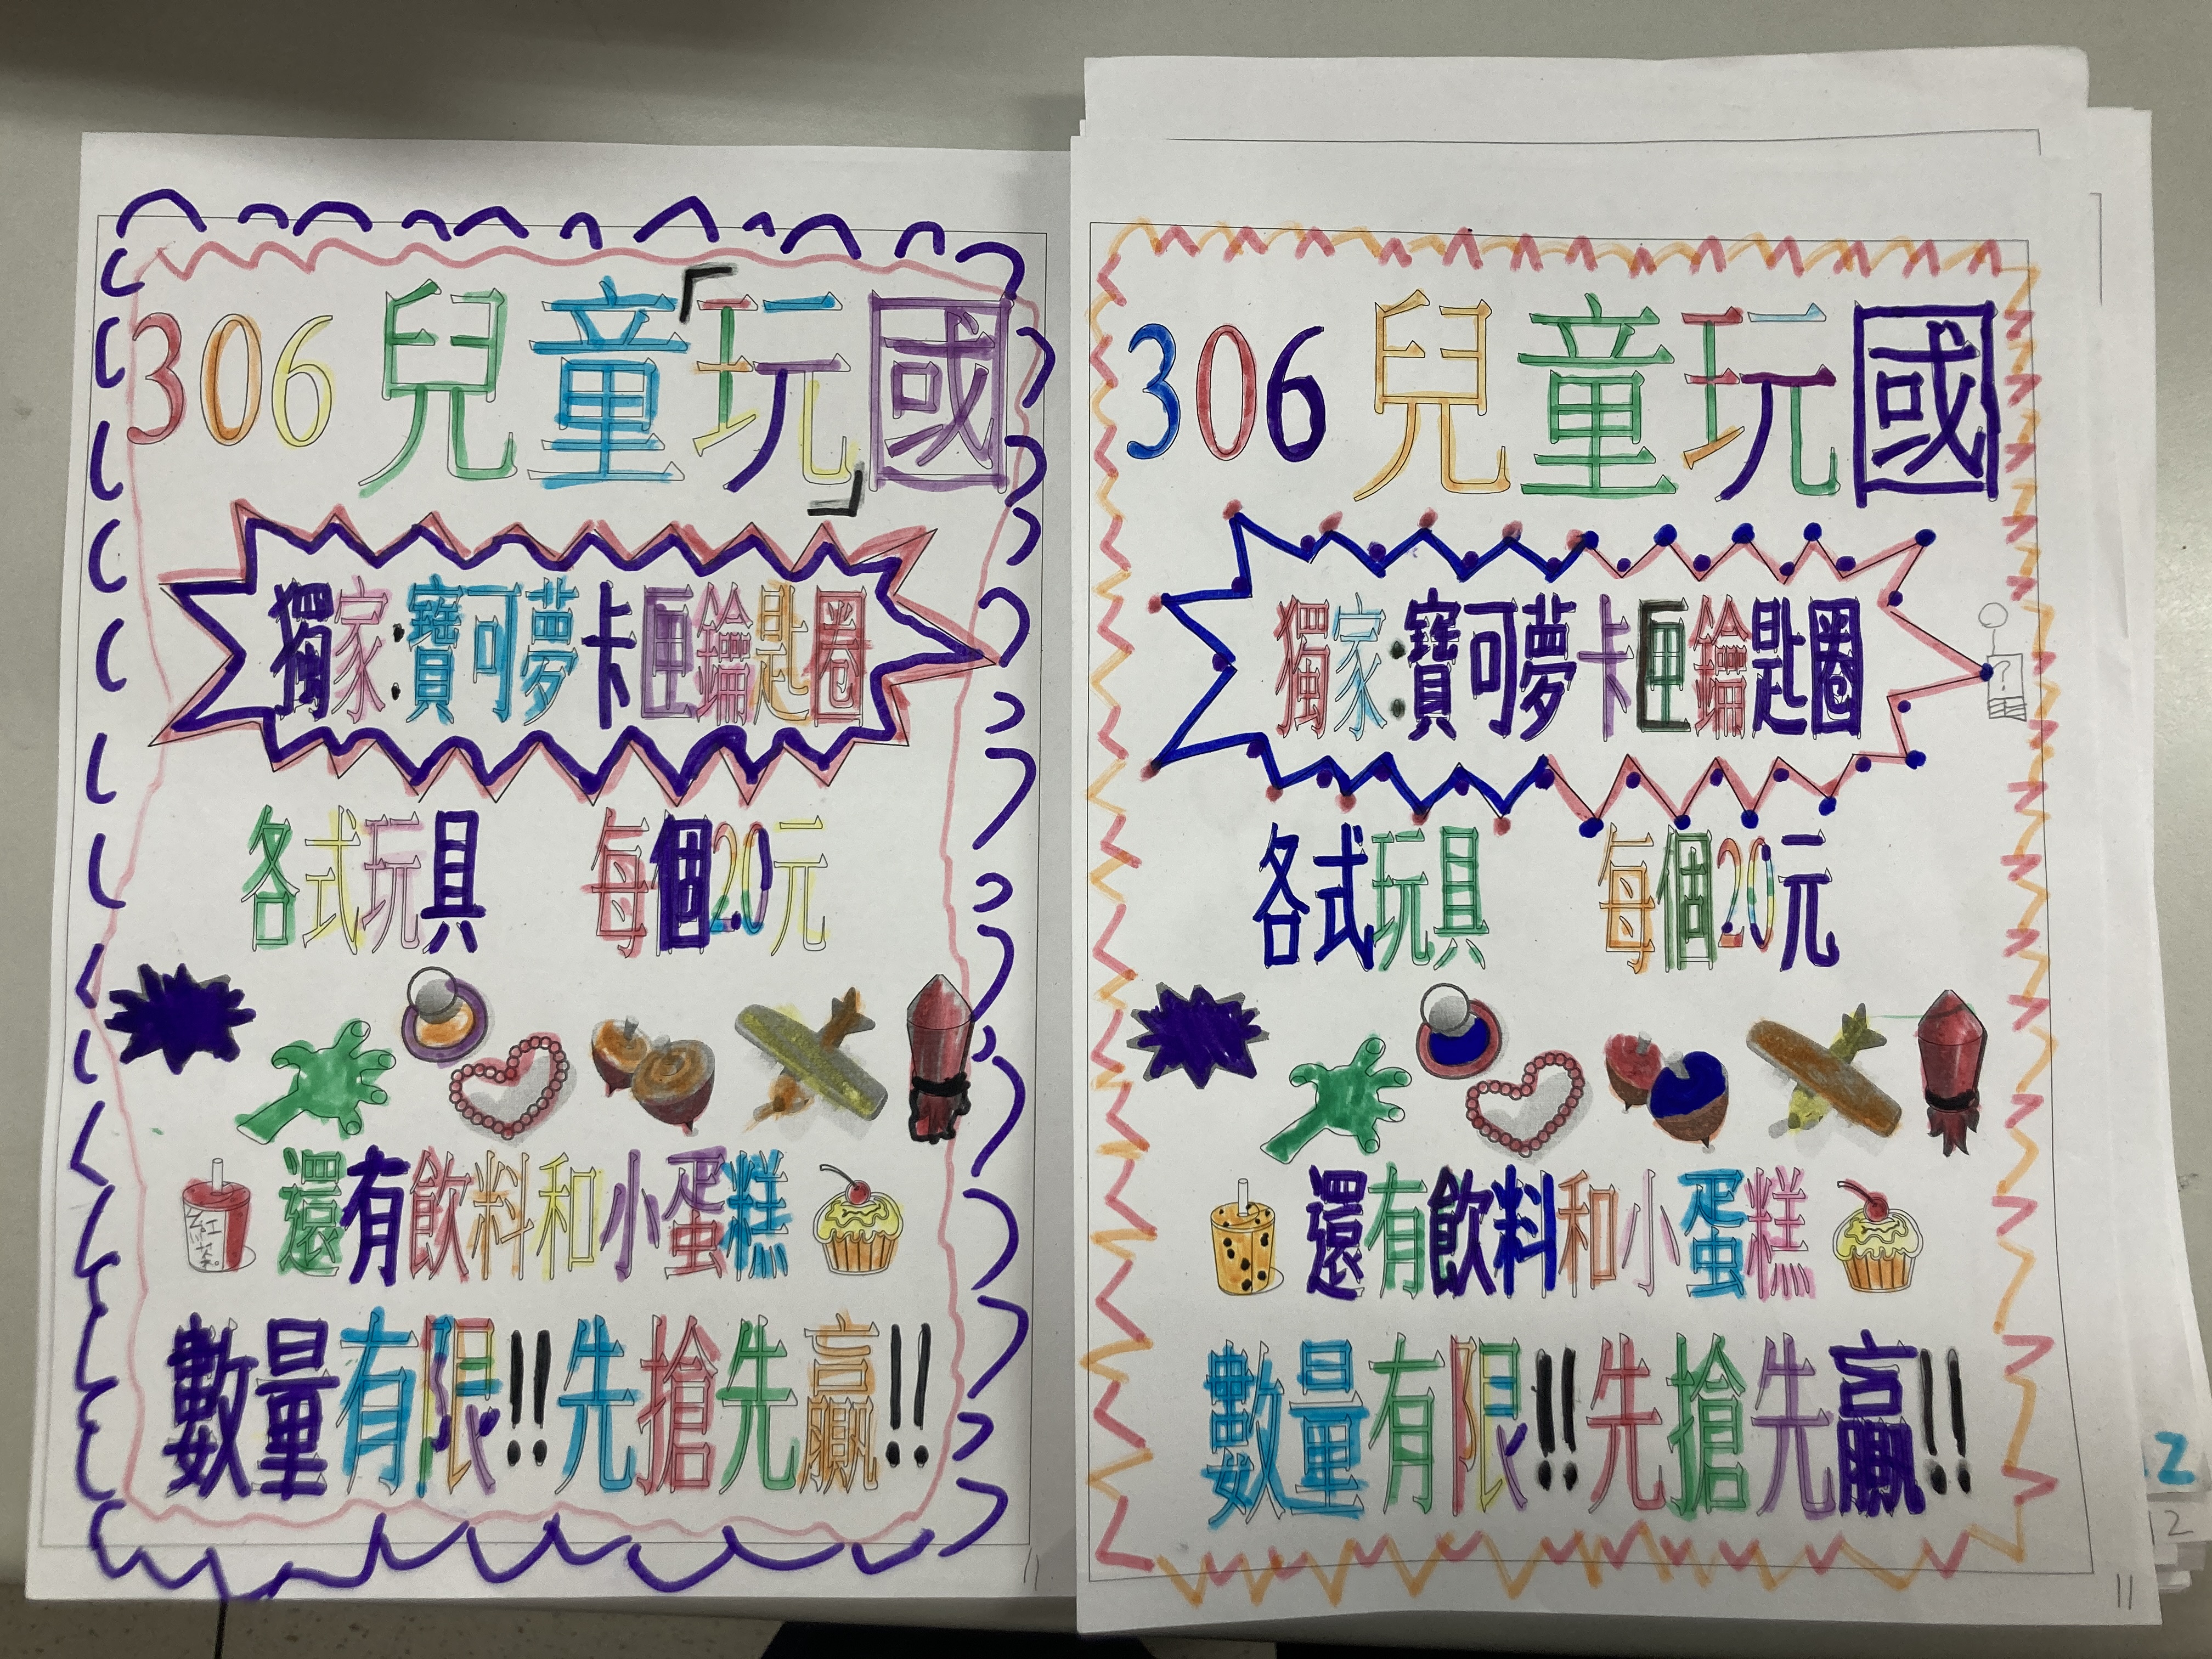 306 兒童「玩」國
獨家:寶可夢卡匣鑰匙圈
各式玩具 每個20元
紅茶
還有飲料和小蛋糕
數量有限!!先搶先贏!!
11
306 兒童玩國
獨家:寶可夢卡匣鑰匙圈
?
各式玩具 每個20元
還有飲料和小蛋糕
數量有限!!先搶先贏!!
11
2
12